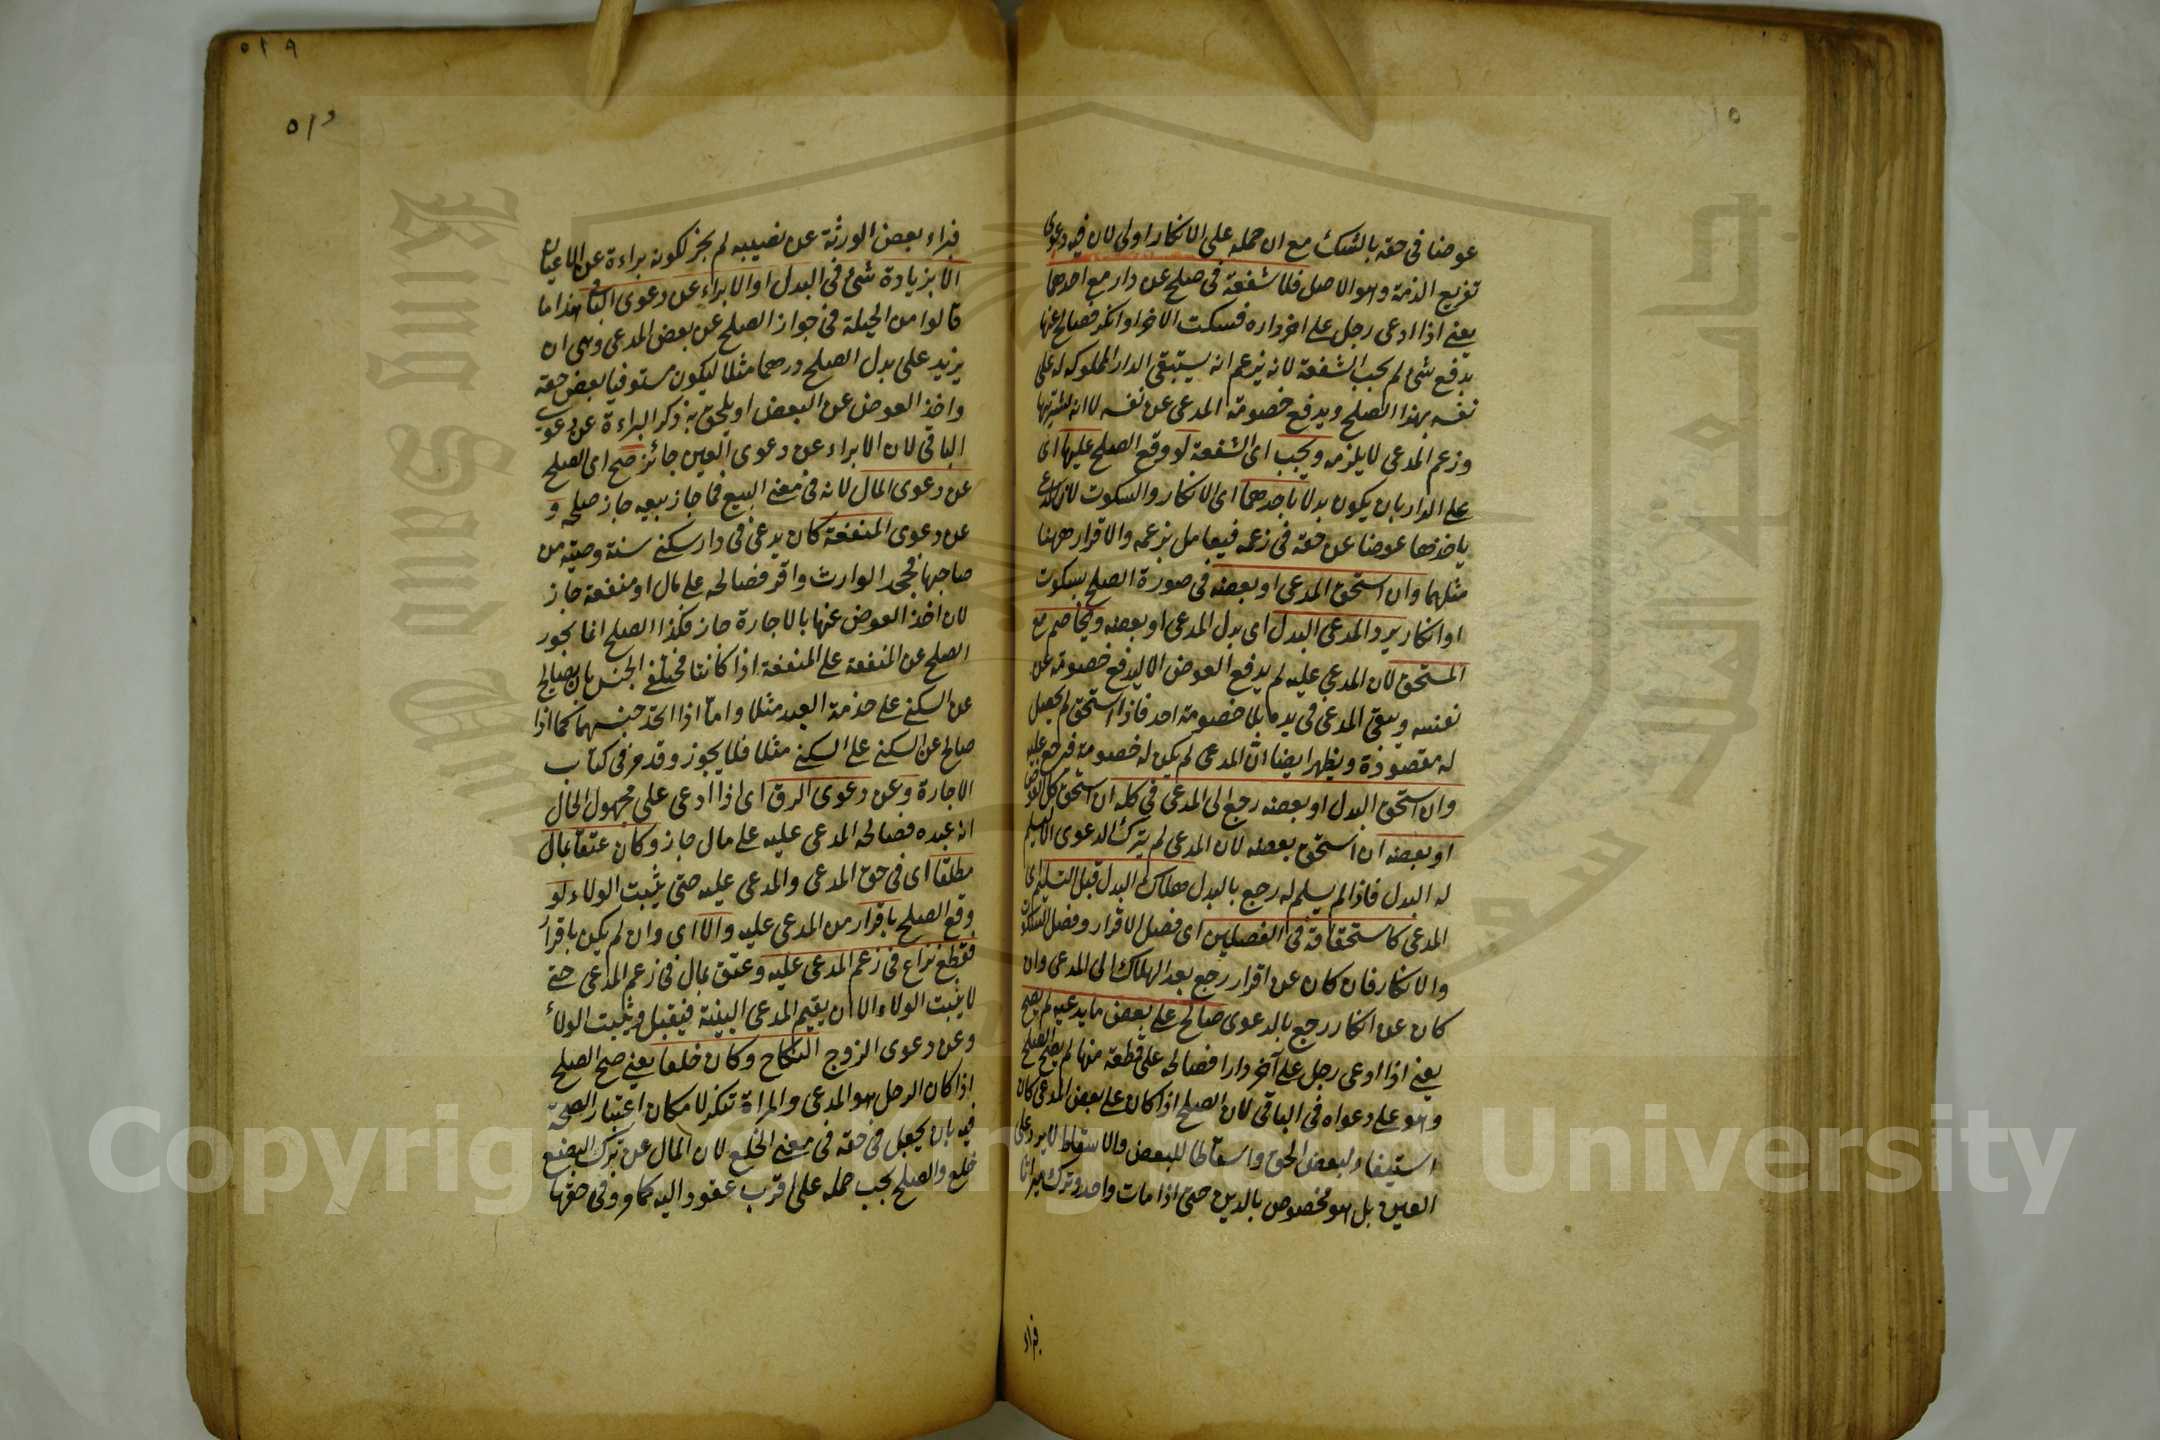 عوضا فى حقه بالشك مع ان حمله على الانكار اولى لان فيه دعوى
تفريغ الذمة وهو الاصل فلا شفعة فى صلح عن دار مع احدهما
يعنى اذا ادعى رجل على اخر داره فسكت الاخر او انكر فصالح عنها
بدفع شئ لم يجب الشفعة لانه يزعم انه يستبقى الدار المملوكه له على
نفسه بهذا الصلح ويدفع خصومة المدعى عن نفسه لا انه يشتريها
وزعم المدعى لا يلزمه ويجب اى الشفعة لو وقع الصلح عليها اى
على الدار بان يكون بدلا باحدهما اى الانكار والسكوت لان المدعى
ياخذها عوضا عن حقه فى زعمه فيعامل بزعمه والاقرار ههنا
مثلهما وان استحق المدعى او بعضه فى صورة الصلح بسكوت
او انكار يرد المدعى البدل اى بدل المدعى او بعضه ويخاصم مع
المستحق لان المدعى عليه لم يدفع العوض الا ليدفع خصومة عن
نفسه ويبقى المدعى فى يده بلا خصومة احد فاذا استحق لم يحصل
له مقصوده ويظهر ايضا ان المدعى لم يكن له خصومة فيرجع عليه
وان استحق البدل او بعضه رجع الى المدعى فى كله ان استحق كل العوض
او بعضه ان استحق بعضه لان المدعى لم يترك الدعوى الا ليسلم
له البدل فاذا لم يسلم له رجع بالبدل هلاك البدل قبل التسليم الى
المدعى كاستحقاقه فى الفصلين اى فصل الاقرار وفصل السكوت
والانكار فان كان عن اقرار رجع بعد الهلاك الى المدعى وان
كان عن انكار رجع بالدعوى صالح على بعض ما يدعيه لم يصح
يعنى اذا ادعى رجل على آخر دارا فصالحه على قطعة منها لم يصح الصلح
وهو على دعواه فى الباقى لان الصلح اذا كان على بعض المدعى كان
استيفاء لبعض الحق واسقاطا للبعض والاسقاط لا يرد على
العين بل هو مخصوص بالدين حتى اذا مات واحد وترك ميراثا
فبراء
٥١٩
٥١٥
فبراء بعض الورثة عن نصيبه لم يجز لكونه براءة عن الاعيان
الا بزيادة شئ فى البدل او الابراء عن دعوى الباقى هذا ما
قالوا من الحيلة فى جواز الصلح عن بعض المدعى وهى ان
يزيد على بدل الصلح درهما مثلا ليكون مستوفيا بعض حقه
واخذ العوض عن البعض او يلحق به ذكر البراءة عن دعوى
الباقى لان الابراء عن دعوى العين جائز صح اى الصلح
عن دعوى المال لانه فى معنى البيع فما جاز بيعه جاز صلحه و
عن دعوى المنفعة كان يدعى فى دار سكنى سنة وصية من
صاحبها فجحد الوارث واقر فصالحه على مال او منفعة جاز
لان اخذ العوض عنها بالاجارة جاز فكذا الصلح انما يجوز
الصلح عن المنفعة على المنفعة اذا كانتا مختلفى الجنس بان يصالح
عن السكنى على خدمة العبد مثلا واما اذا اتحد جنسهما كما اذا
صالح عن السكنى على السكنى مثلا فلا يجوز وقد مر فى كتاب
الاجارة وعن دعوى الرق اى اذا ادعى على مجهول الحال
انه عبده فصالحه المدعى عليه على مال جاز وكان عتقا بمال
مطلقا اى فى حق المدعى والمدعى عليه حتى يثبت الولاء لو
وقع الصلح باقرار من المدعى عليه والا اى وان لم يكن باقرار
فقطع نزاع فى زعم المدعى عليه وعتق بمال فى زعم المدعى حتى
لا يثبت الولاء الا ان يقيم المدعى البينة فيقبل ويثبت الولاء
وعن دعوى الزوج النكاح وكان خلعا يعنى صح الصلح
اذا كان الرجل هو المدعى والمراة تنكر لامكان اعتبار الصحة
فيه بان يجعل فى حقه فى معنى الخلع لان المال عن ترك البضع
خلع والصلح يجب حمله على اقرب عقود اليه كما مر وفى حقها
King Saud University
Copyright © King Saud University